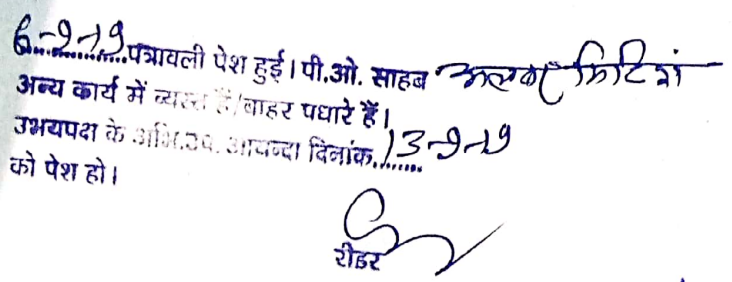 6-9-19 पत्रावली पेश हुई। पी.ओ. साहब अलवर मिटिंग
अन्य कार्य में व्यस्त हैं/बाहर पधारे हैं।
उभयपक्ष के अभि.उप. आयन्दा दिनांक 13-9-19
को पेश हो।
रीडर